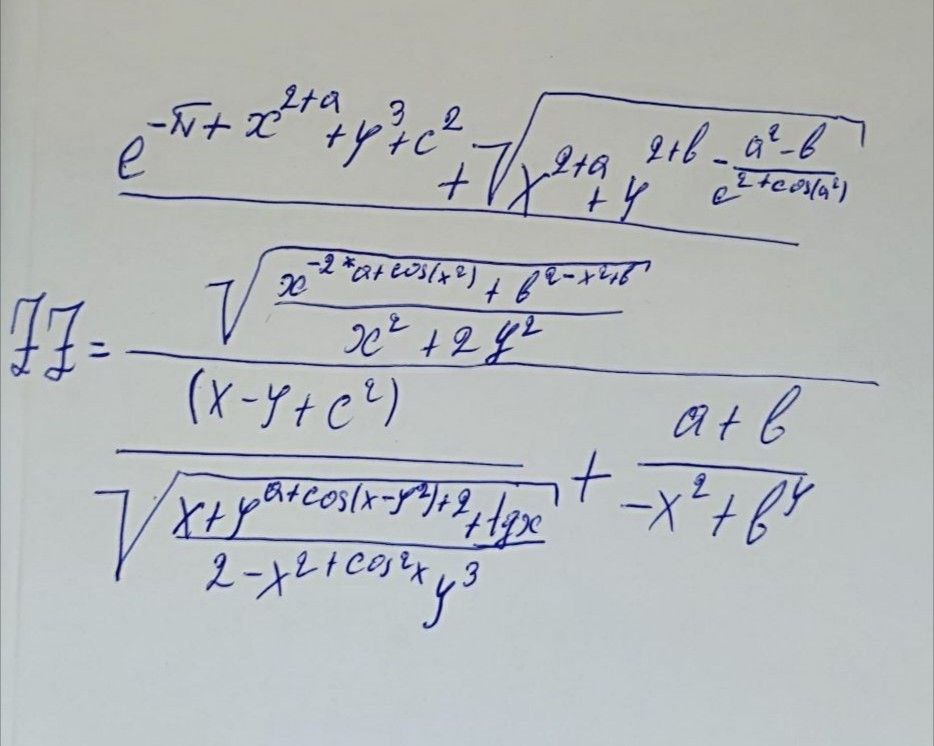 e^{-π+x^{2+a}+y^3+c^2} + √(x^{2+a} + y^{2+b-\frac{a^2-b}{e^{2+cos(a^2)}}})
√(\frac{x^{-2*a+cos(x^2)} + b^{2-x^2+b}}{x^2+2y^2})
JJ =
\frac{(x-y+c^2)}{√(\frac{x+y^{a+cos(x-y^2)+2}+tgx}{2-x^{2+cos^2x}y^3})} + \frac{a+b}{-x^2+b^y}